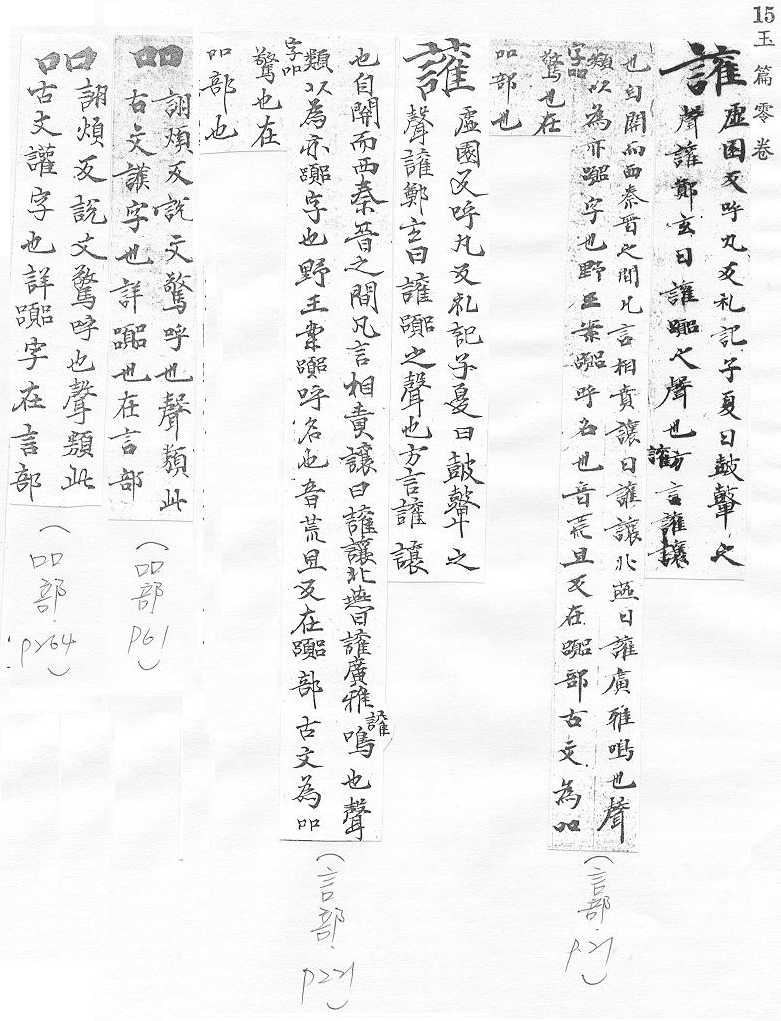 15玉篇零卷
讙虛園反呼丸反礼記子夏曰鼓鼙之
聲讙鄭玄曰讙嚻之聲也方言讙讓
也自關而西秦晉之間凡言相責讓曰讙讓北燕曰讙廣雅鳴也聲
類以為亦嚻字也野王案嚻呼名也音荒旦反在嚻部古文為吅
字吅
驚也在
吅部也
(言部.
P.21)
讙虛園反呼丸反礼記子憂曰鼓鼙之
聲讙鄭玄曰讙嚻之聲也方言讙讓
也自關而西秦晉之間凡言相責讓曰讙讓北燕曰讙廣雅讙鳴也聲
類以為亦嚻字也野王案嚻呼名也音荒旦反在嚻部古文為吅
字吅
驚也在
吅部也
(言部.
P221)
吅詡煩反說文驚呼也聲類此
古文讙字也詳嚻也在言部
(吅部
P61)
吅詡煩反說文驚呼也聲類此
古文讙字也詳嚻字在言部
(吅部.
P264)